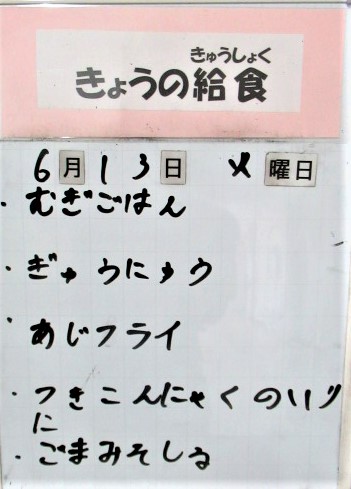 きゅうしょく
きょうの給食
6月13日 火曜日
・むぎごはん
・ぎゅうにゅう
・あじフライ
・つきこんにゃくのいり
に
・ごまみそしる